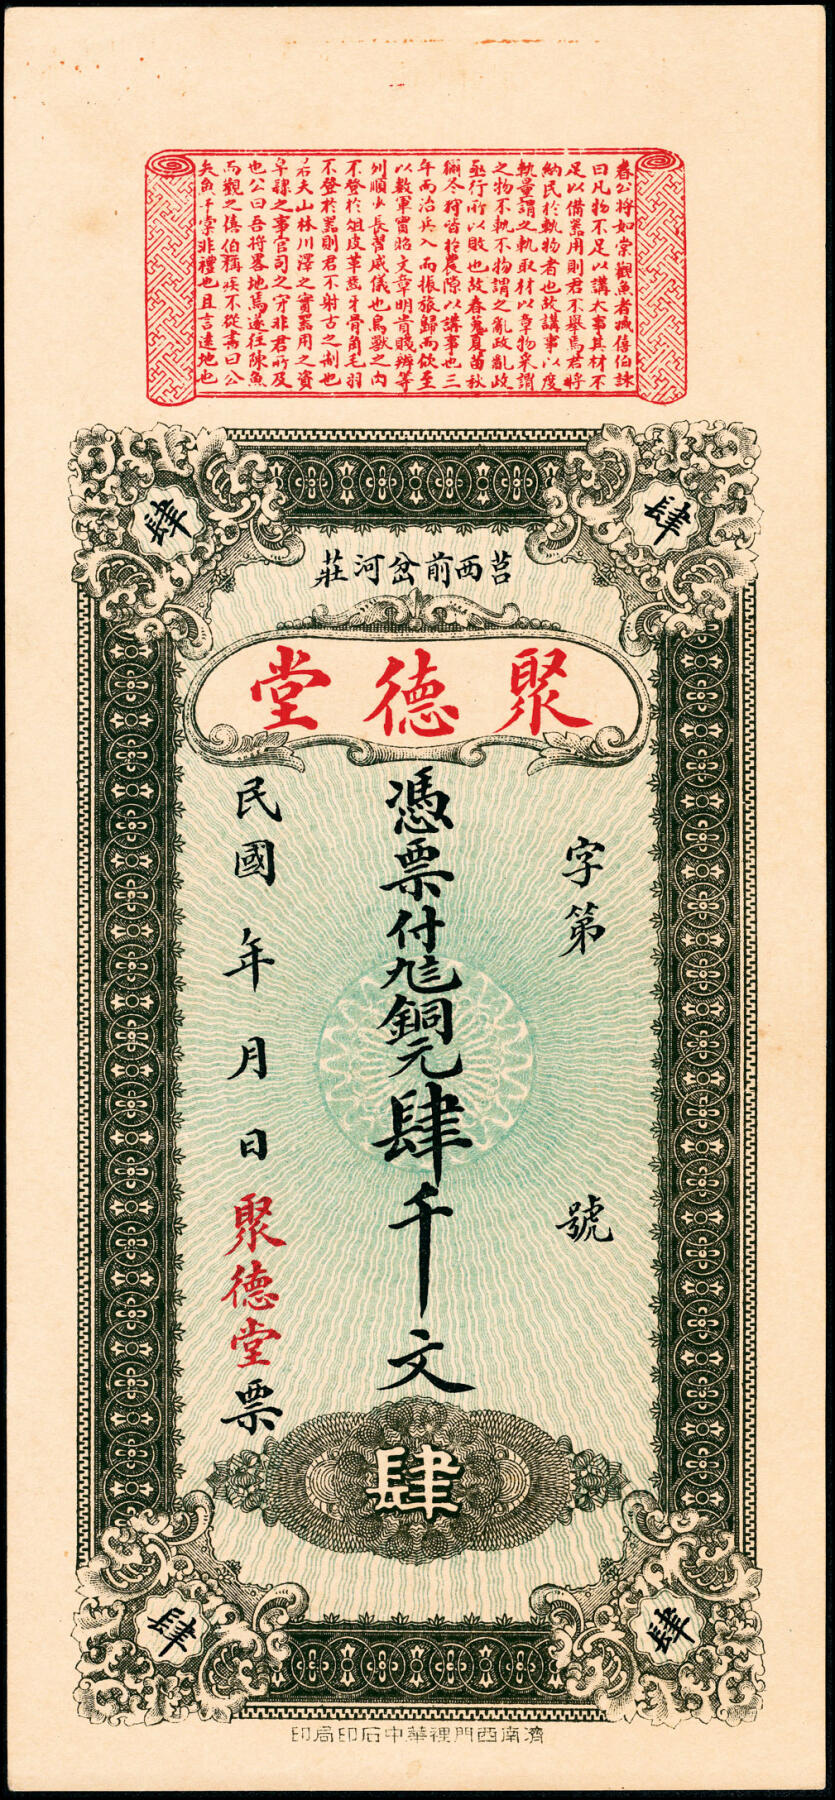 春公將如棠觀魚者臧僖伯諫
曰凡物不足以講大事其材不
足以備器用則君不舉焉君將
納民於軌物者也故講事以度
軌量謂之軌取材以章物采謂
之物不軌不物謂之亂政亂政
亟行所以敗也故春蒐夏苗秋
獮冬狩皆於農隙以講事也三
年而治兵入而振旅歸而飲至
以數軍實昭文章明貴賤辨等
列順少長習威儀也鳥獸之肉
不登於俎皮革齒牙骨角毛羽
不登於器則君不射古之制也
若夫山林川澤之實器用之資
皁隸之事官司之守非君所及
也公曰吾將畧地焉遂往陳魚
而觀之僖伯稱疾不從書曰公
矢魚于棠非禮也且言遠地也
肆
肆
莒西前岔河莊
聚德堂
字第 號
憑票付銅元肆千文
民國 年 月 日 聚德堂票
肆
肆
肆
濟南西門裡華中石印局印